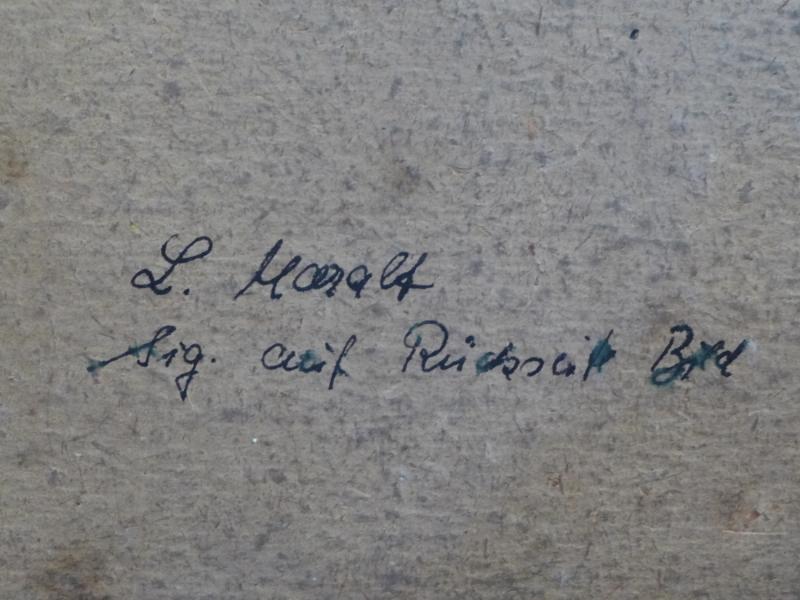 L. Moralt
Sig. auf Rückseite Bild